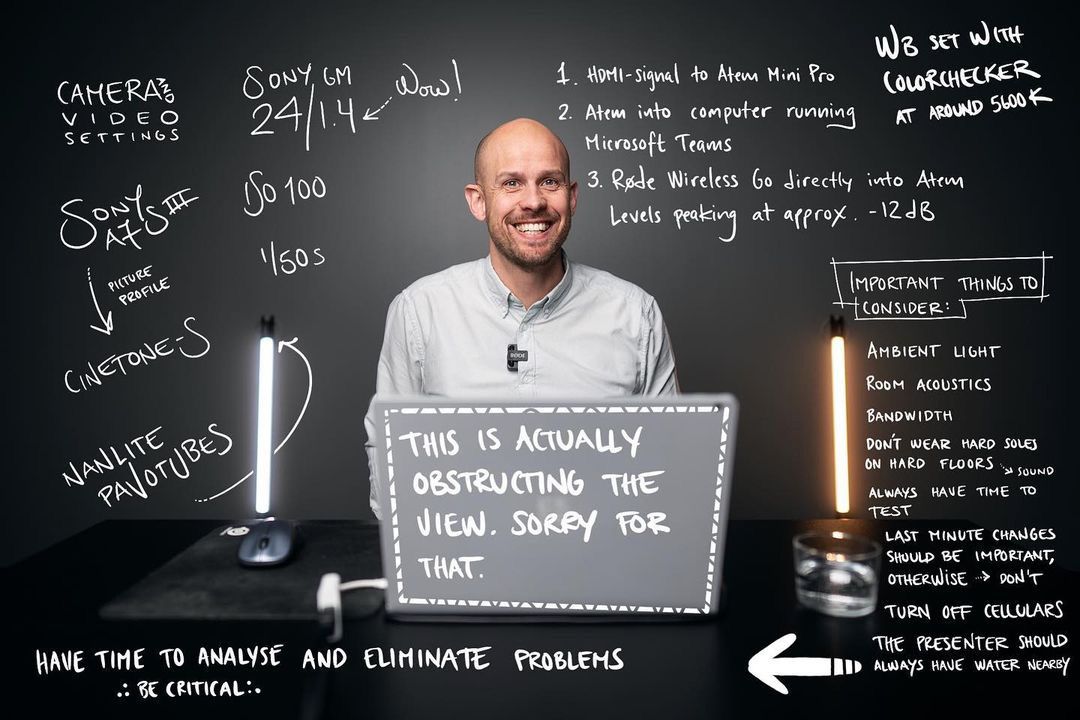 CAMERA AND
VIDEO
SETTINGS
SONY
A7SIII
PICTURE
PROFILE
CINETONE-S
NANLITE
PAVOTUBES
SONY GM
24/1.4
Wow!
ISO 100
1/50s
1. HDMI-signal to Atem Mini Pro
2. Atem into computer running
Microsoft Teams
3. Røde Wireless Go directly into Atem
Levels peaking at approx. -12dB
WB SET WITH
COLORCHECKER
AT AROUND 5600K
IMPORTANT THINGS TO
CONSIDER:
AMBIENT LIGHT
ROOM ACOUSTICS
BANDWIDTH
DON'T WEAR HARD SOLES
ON HARD FLOORS
SOUND
ALWAYS HAVE TIME TO
TEST
LAST MINUTE CHANGES
SHOULD BE IMPORTANT,
OTHERWISE ⇢ DON'T
TURN OFF CELLULARS
THE PRESENTER SHOULD
ALWAYS HAVE WATER NEARBY
RØDE
THIS IS ACTUALLY
OBSTRUCTING THE
VIEW. SORRY FOR
THAT.
HAVE TIME TO ANALYSE AND ELIMINATE PROBLEMS
.: BE CRITICAL :.